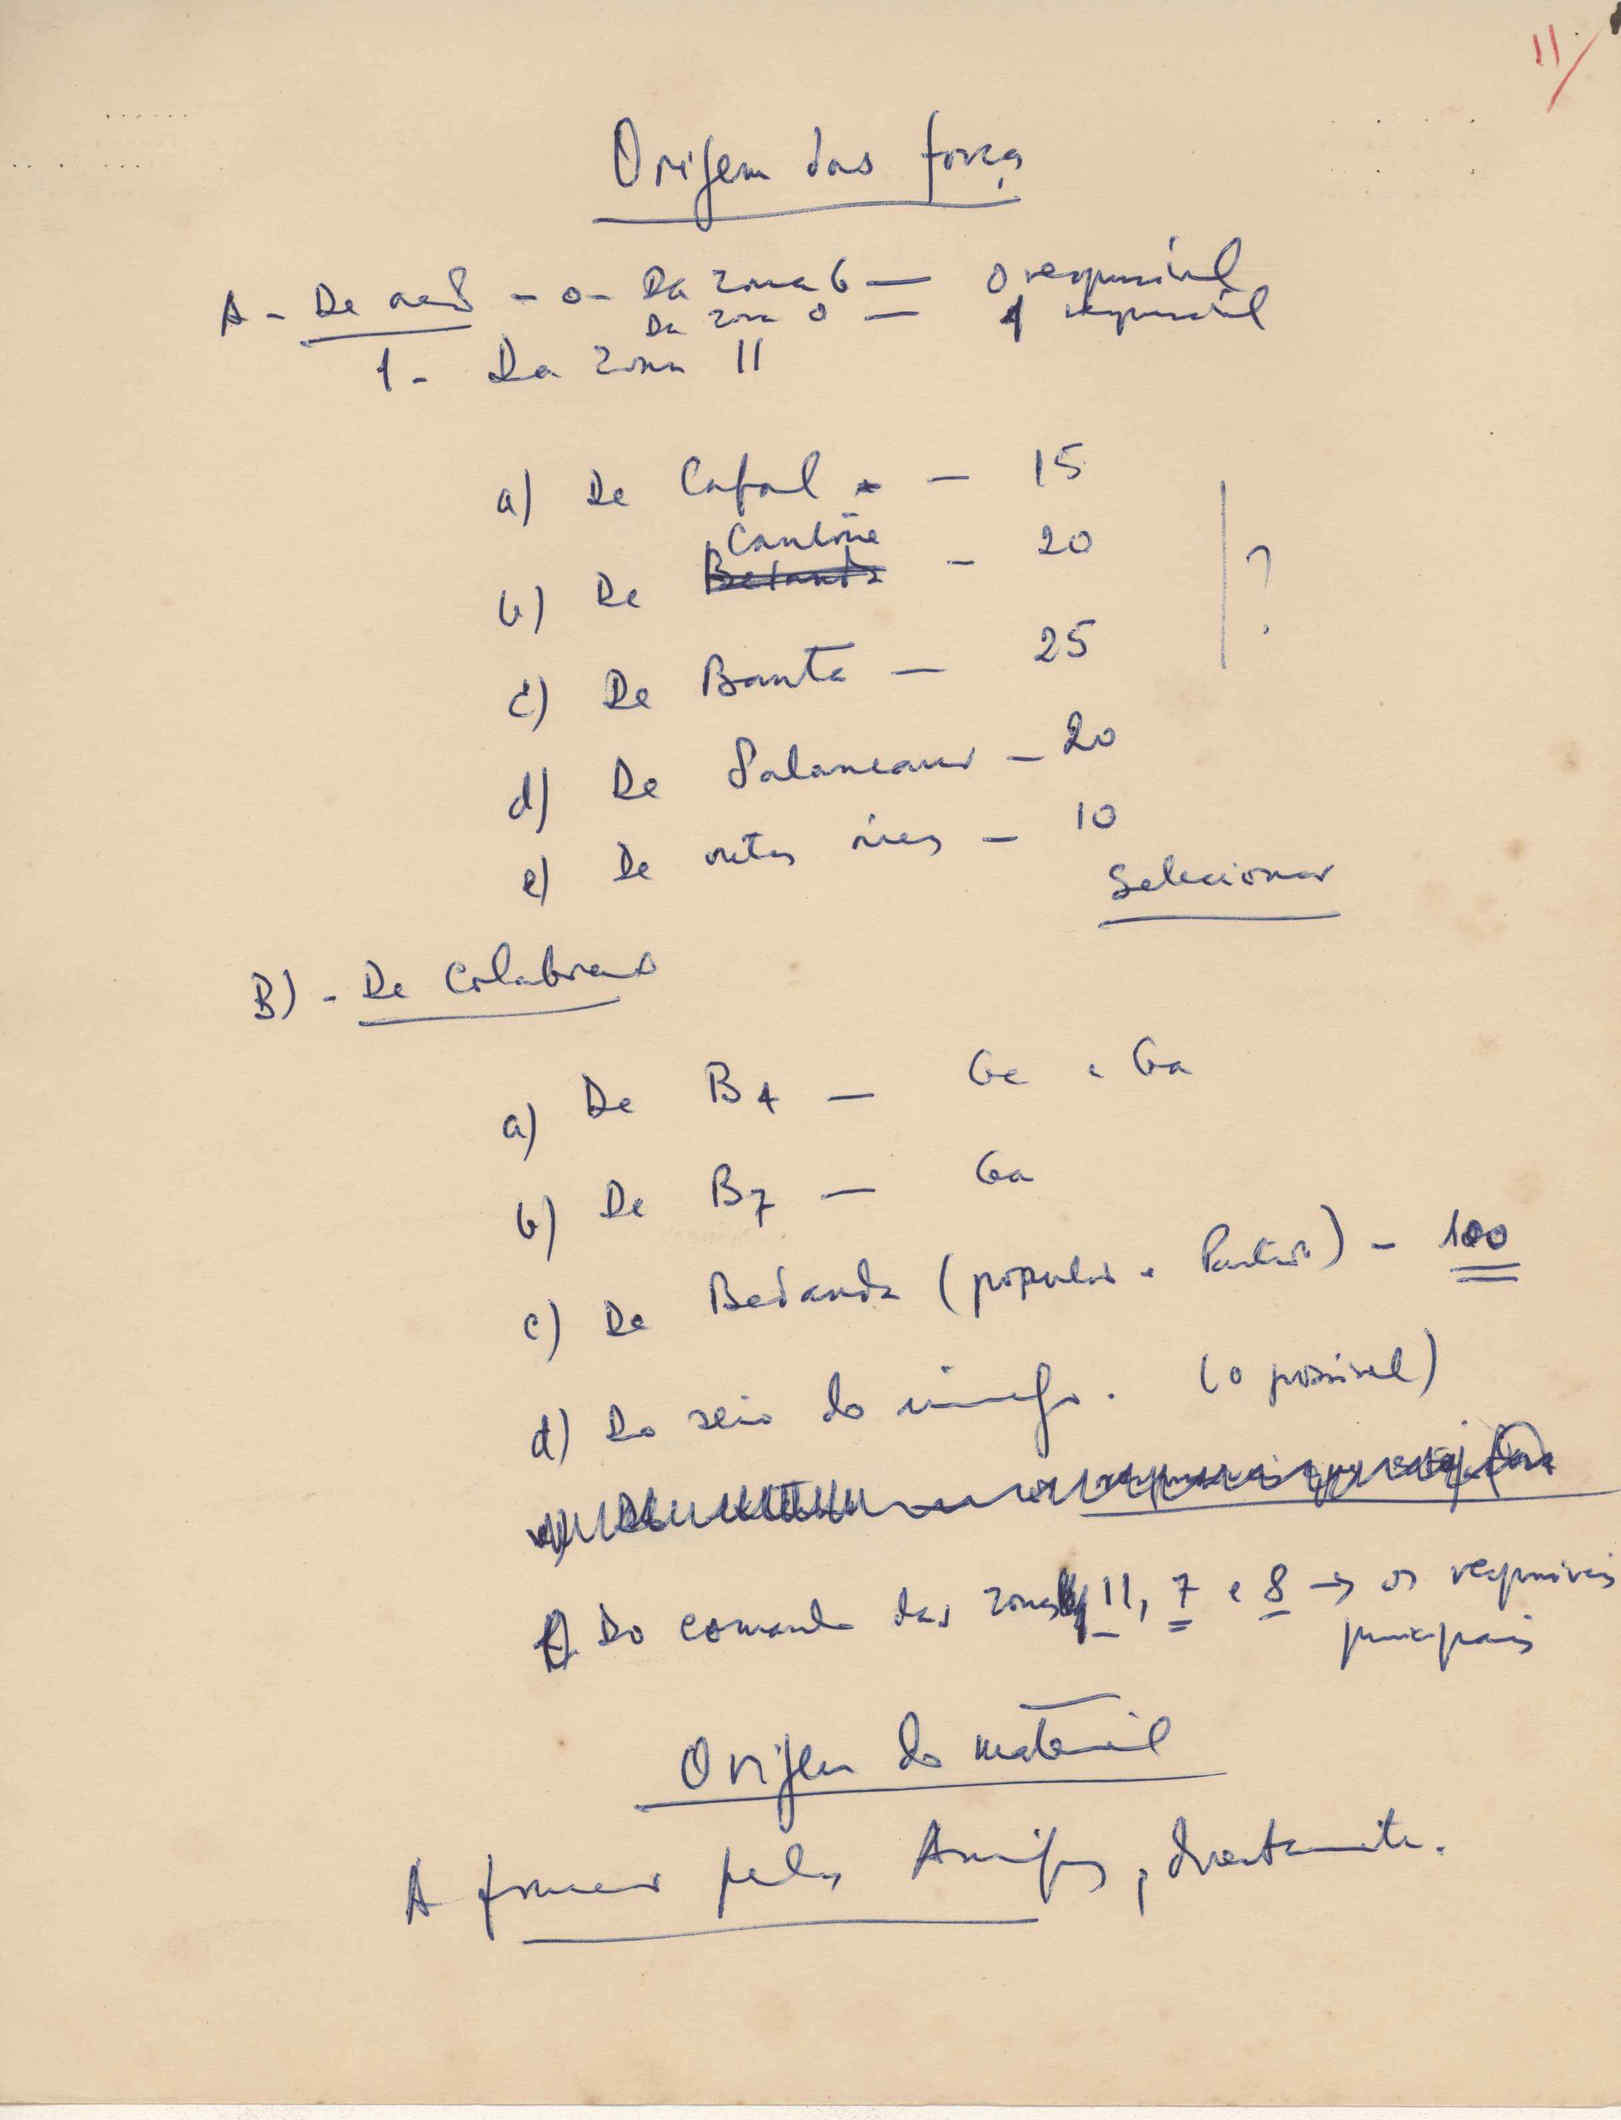 11/
Origem das forças
A - De acção - 0 - Da zona 6 — o responsável
Da zona 0 — 1 responsável
1 - Da zona 11
a) De Cafal — 15
Cantone
b) De Bedanda — 20
c) De Banta — 25
?
d) De Salancaur — 20
e) De outas áreas — 10
Selecionar
B) - De Colaboração
a) De B4 — Ge e Ga
b) De B7 — Ga
c) De Bedanda (popular e Partido) - 100
d) Do seio do inimigo. (o possível)
Do comando das zonas 11, 7 e 8 → os responsáveis
principais
Origem do material
A fornecer pelos Amigos, directamente.